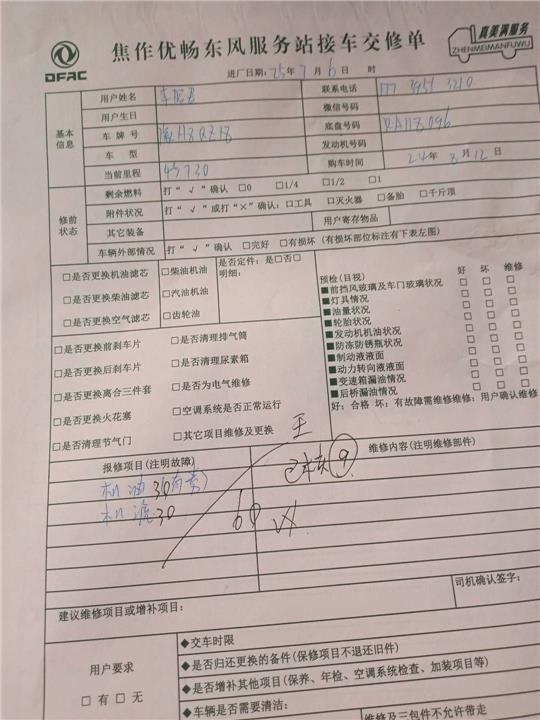 DFAC
焦作优畅东风服务站接车交修单
真美满服务
ZHENMEIMANFUWU
进厂日期: 25年 7 月 6 日 时
基本信息
用户姓名
联系电话 177 3951 3210
用户生日
微信号码
车牌号
底盘号码
车 型
发动机号码
当前里程 45730
购车时间 24年 8 月 12 日
修前状态
剩余燃料 打“ √ ”确认 □0 □1/4 □1/2 □1
附件状况 打“ √ ”或打“×”确认: □工具 □灭火器 □备胎 □千斤顶
其它装备 用户寄存物品
车辆外部情况 打“ √ ”确认 □完好 □有损坏 (有损坏部位标注有下表左图)
□是否更换机油滤芯 □柴油机油 是否定件: 是□否□
明细:
□是否更换柴油滤芯 □汽油机油
□是否更换空气滤芯 □齿轮油
预检(目视) 好 坏 维修
■前挡风玻璃及车门玻璃状况 □ □ □
■灯具情况 □ □ □
■油量状况 □ □ □
■轮胎状况 □ □ □
■发动机机油状况 □ □ □
■防冻防锈瓶状况 □ □ □
■制动液液面 □ □ □
■动力转向液液面 □ □ □
■变速箱漏油情况 □ □ □
■后桥漏油情况 □ □ □
好: 合格 坏: 有故障需维修维修: 用户确认维修
□是否更换前刹车片 □是否清理排气筒
□是否更换后刹车片 □是否清理尿素箱
□是否更换离合三件套 □是否为电气维修
□是否更换火花塞 □空调系统是否正常运行
□是否清理节气门 □其它项目维修及更换
报修项目(注明故障) 维修内容(注明维修部件)
王
⑨
机油 30
机滤 30
60
司机确认签字:
建议维修项目或增补项目:
用户要求
□有 □无
◆交车时限
◆是否归还更换的备件(保修项目不退还旧件)
◆是否增补其他项目(保养、年检、空调系统检查、加装项目等)
◆车辆是否需要清洁:
维修及三包件不允许带走